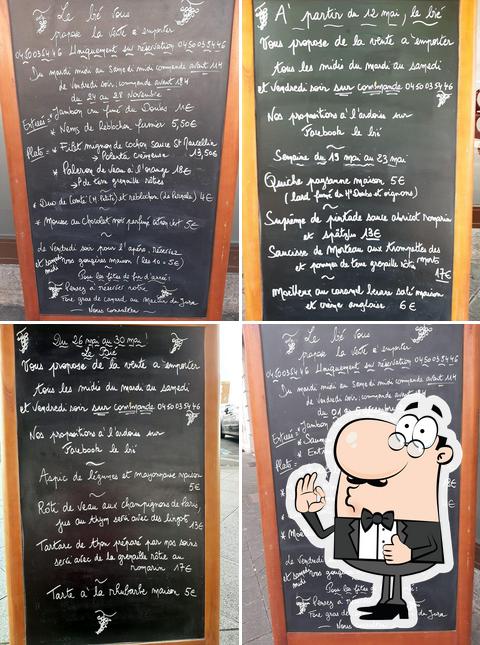 Le bié vous
propose la vente à emporter
0450035446 Uniquement sur réservation 0450035446
Du mardi midi au Samedi midi commande avant 11H
de Vendredi soir, commande avant 18H
du 24 au 28 Novembre
Entrées: * Jambon cru fumé du Doubs 1€
* Nems de Reblochon fermier 5,50€
Plats: * Filet mignon de cochon sauce St Marcellin
→ Polenta crémeuse 13,50€
* Paleron de veau à l'orange 18€
→ P de terre grenaille rôties
* Duo de Comté (M. Petite) et reblochon (de Paccaly) 4€
* Mousse au Chocolat noir parfumé citron vert 5€
de Vendredi soir pour l'apéro, réservez
et samedi midi nos gougères maison (les 10 = 5€)
Pour les fêtes de fin d'année:
Pensez à réserver notre
Foie gras de canard au Macvin du Jura
Nous consulter
A' partir du 12 mai, le bié
Vous propose de la vente à emporter
tous les midis du mardi au samedi
et Vendredi soir sur commande 0450035446
Nos propositions à l'ardoise sur
Facebook le bié
Semaine du 19 mai au 23 mai
Quiche paysanne maison 5€
(lard fumé du Ht Doubs et oignons)
Suprême de pintade sauce abricot romarin
et spätzles 13€
Saucisse de Morteau aux trompettes des morts
et pomme de terre grenaille rôtie
17€
Moelleux au caramel beurre salé maison
et crème anglaise 6€
Du 26 mai au 30 mai!
Le Bié
Vous propose de la vente à emporter
tous les midis du mardi au samedi
et Vendredi soir sur commande 0450035446
Nos propositions à l'ardoise sur
Facebook le bié
Aspic de légumes et mayonnaise maison
5€
Rôti de veau aux champignons de Paris,
jus au thym servi avec des lingots 13€
Tartare de thon préparé par nos soins
servi avec de la grenaille rôtie au
romarin 17€
Tarte à la rhubarbe maison 5€
Le bié vous
propose la vente à emporter
0450035446 Uniquement sur réservation 0450035446
Du mardi midi au Samedi midi commande avant 11H
de Vendredi soir, commande
Entrées: * Jambon
Plats:
de Vendredi
et samedi midi nos
Pour les fêtes
Pensez à
Foie gras de du Jura
Nous